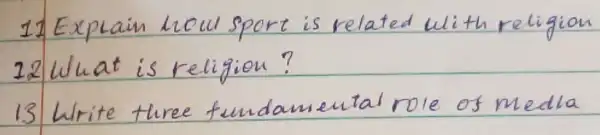 11 Explain how sport is related with religion
12 What is religion?
13 Write three fundamental role of media